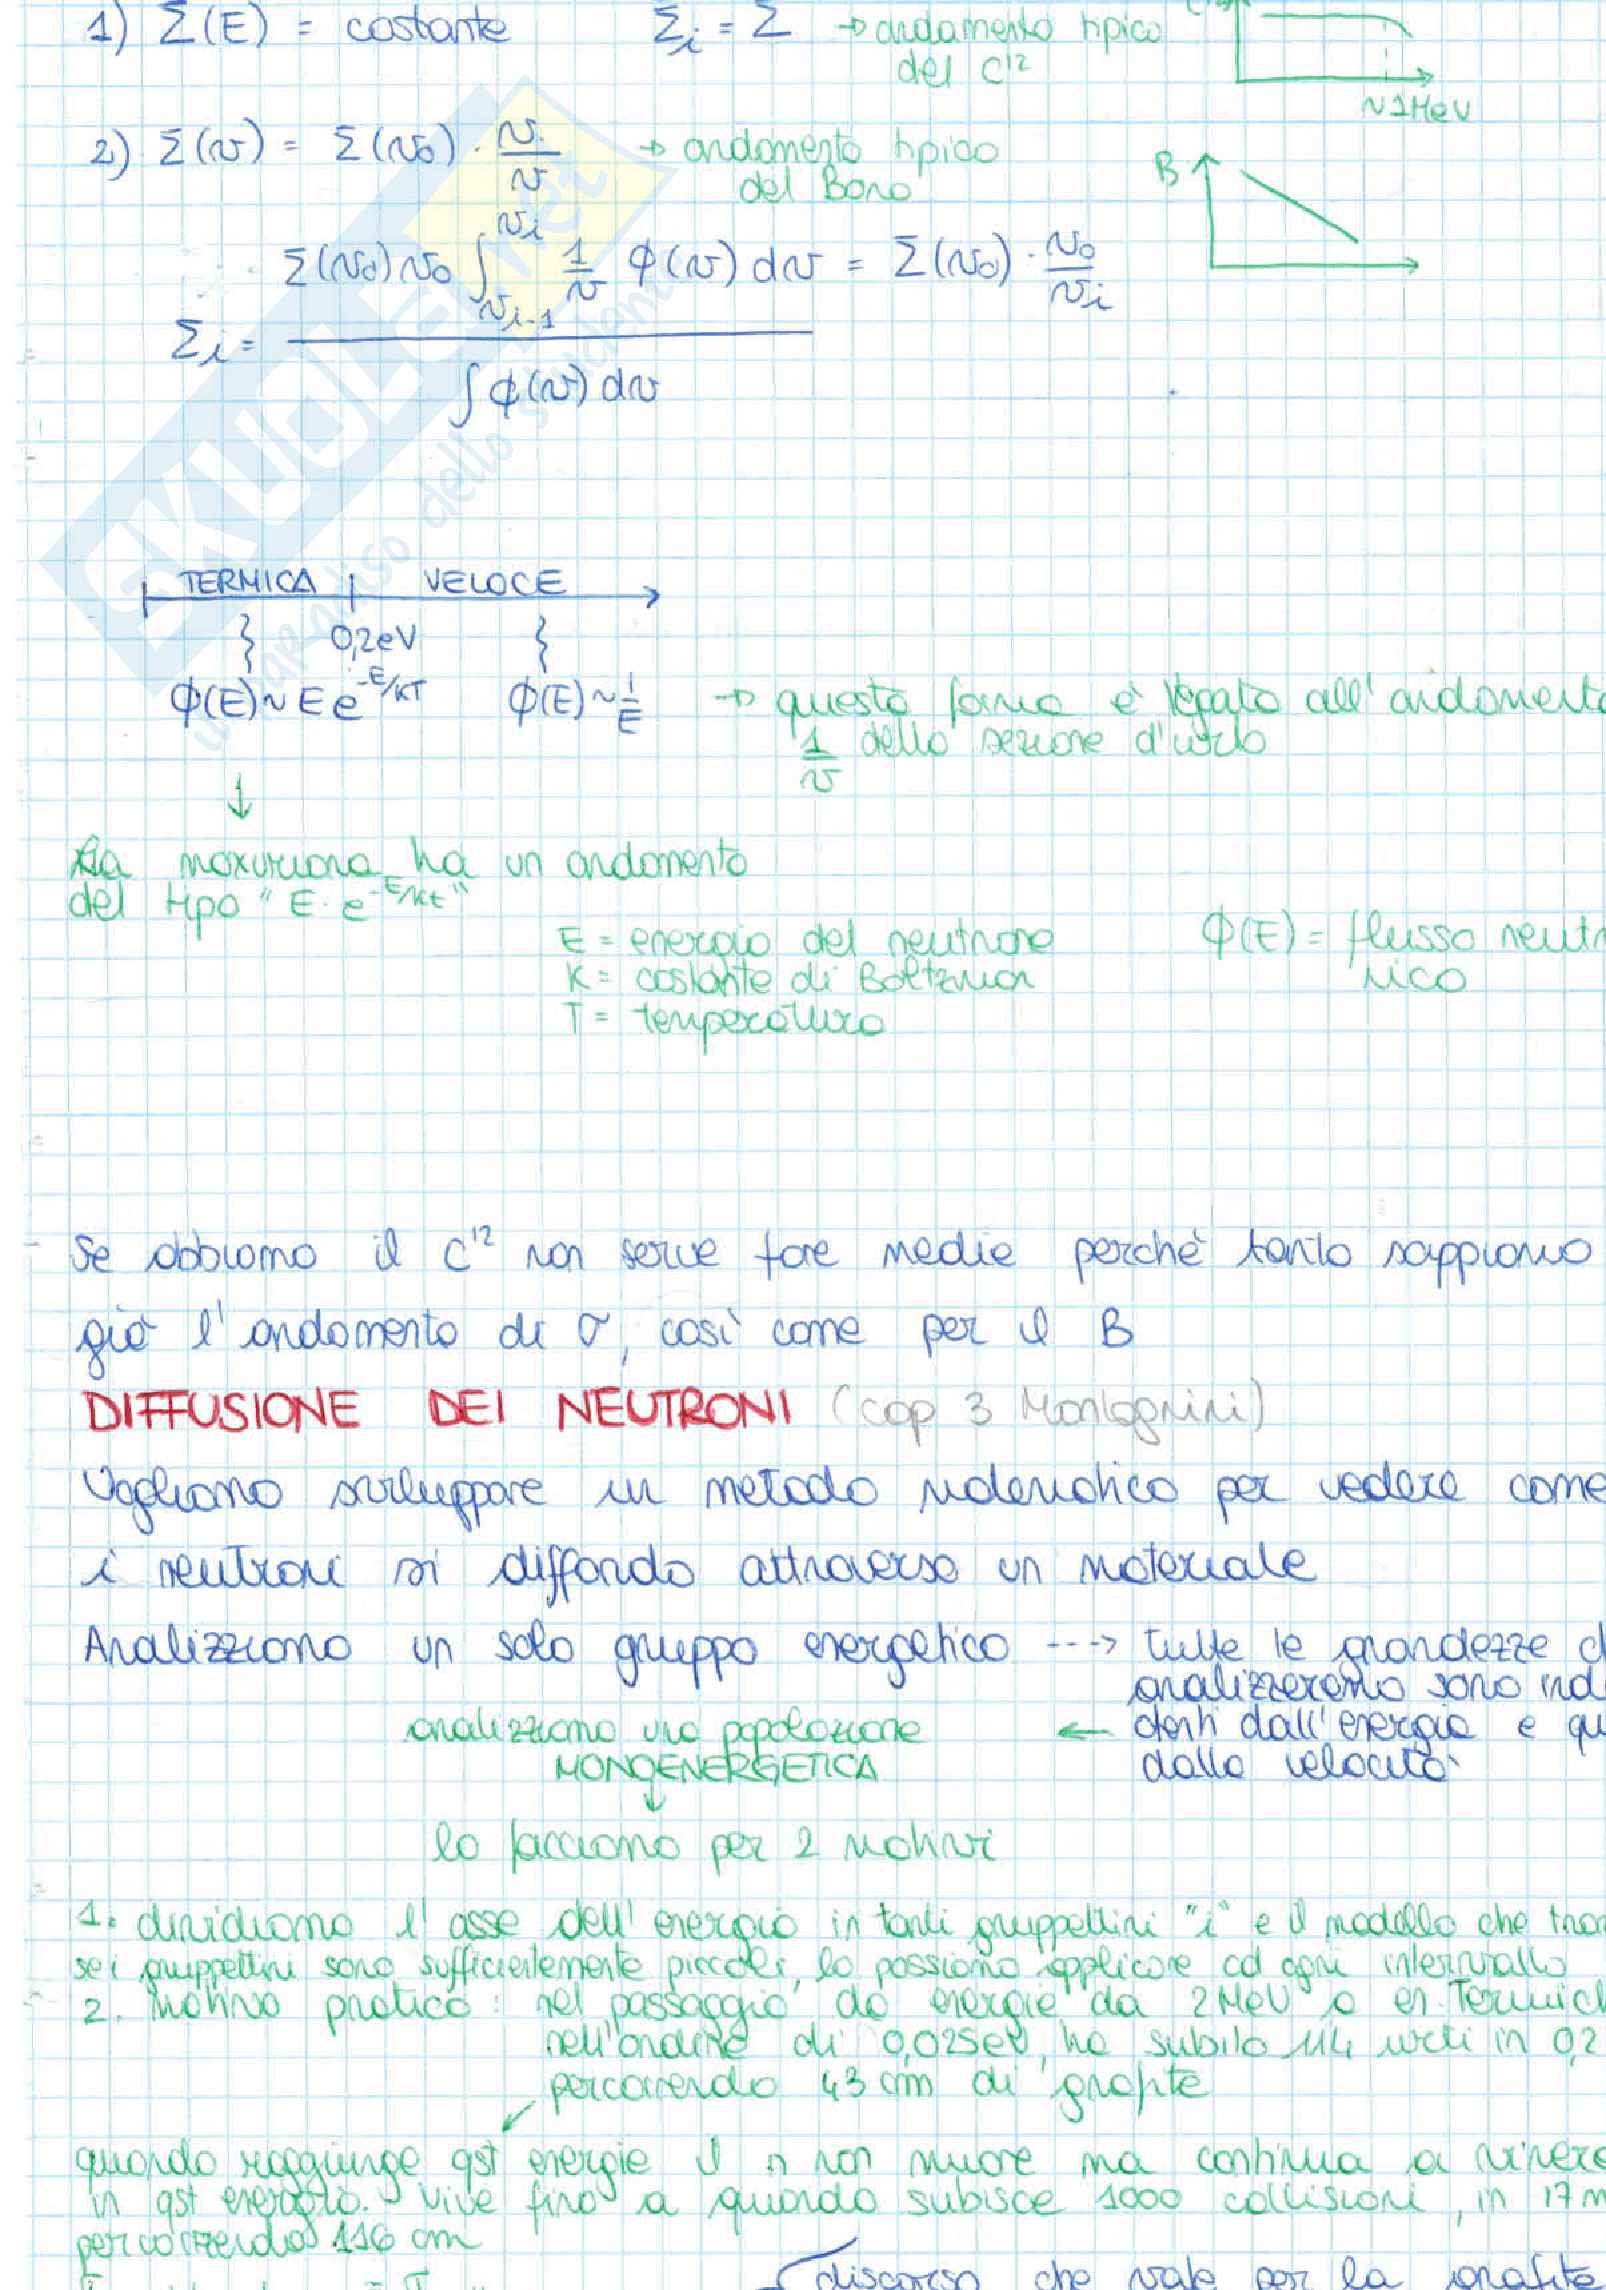 1) Σ(E) = costante Σi = Σ → andamento tipico
del C¹²
~1MeV
2) Σ(v) = Σ(v₀) · v./v → andamento tipico
del Boro
B
Σi = Σ(v₀)v₀ ∫_{vi-1}^{vi} 1/v ϕ(v) dv / ∫ϕ(v) dv = Σ(v₀) · v₀/vi
SKUOLA.net
il paradiso dello studente
TERMICA VELOCE
0,2eV
ϕ(E)~E e^{-E/KT} ϕ(E)~1/E → questa forma è legata all'andamento
1/v della sezione d'urto
La maxwiana ha un andamento
del tipo "E·e^{-E/kt}"
E = energia del neutrone ϕ(E) = flusso neutr
K = costante di Boltzman nico
T = temperatura
Se abbiamo il C¹² non serve fare medie perchè tanto sappiamo
già l'andamento di σ, così come per il B
DIFFUSIONE DEI NEUTRONI (cap 3 Montagnini)
Vogliamo sviluppare un metodo matematico per vedere come
i neutroni si diffondo attraverso un materiale
Analizziamo un solo gruppo energetico ---> tutte le grandezze c
analizzeremo sono ind
analizziamo una popolazione ← denti dall'energia e qu
MONOENERGETICA dalla velocità
lo facciamo per 2 motivi
1. dividiamo l'asse dell'energia in tanti gruppettini "i" e il modello che tro
se i gruppettini sono sufficientemente piccoli, lo possiamo applicare ad ogni intervallo
2. motivo pratico: nel passaggio da energie da 2MeV a en. Termich
nell'ordine di 0,025eV, ha subito 114 urti in 0,2
percorrendo 43 cm di grafite
quando raggiunge qst energie il n non muore ma continua a
in qst energia. Vive fino a quando subisce 1000 collisioni, in 17m
percorrendo 116 cm
discorso che vale per la grafite